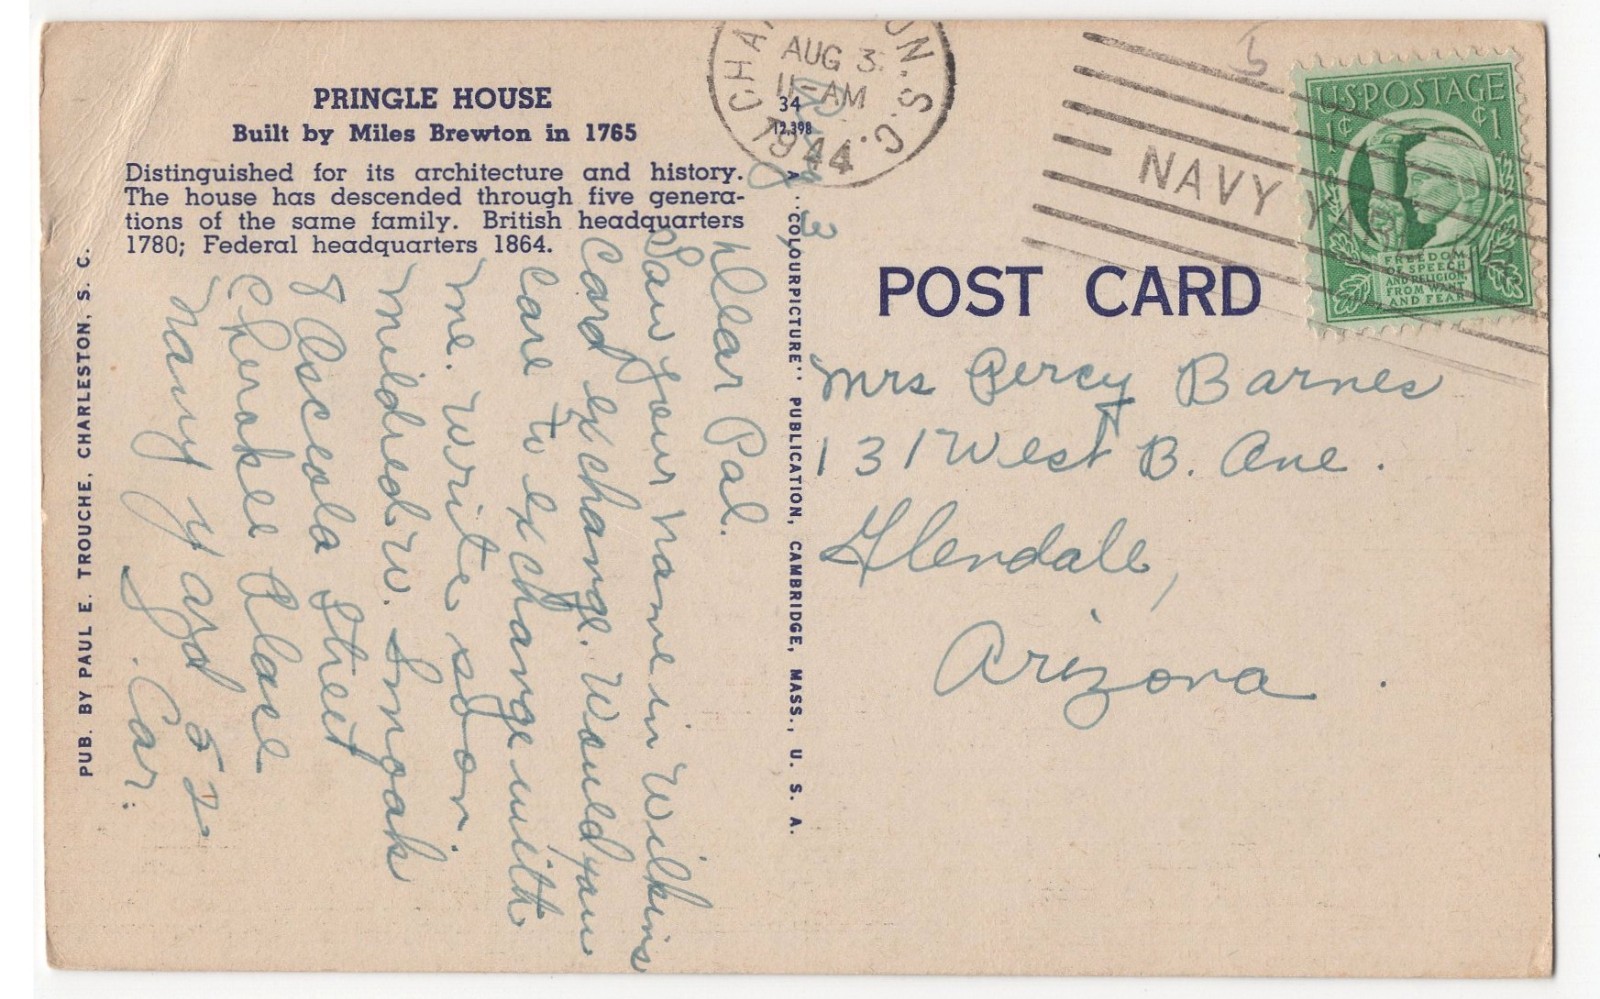 PRINGLE HOUSE
Built by Miles Brewton in 1765
Distinguished for its architecture and history.
The house has descended through five genera-
tions of the same family. British headquarters
1780; Federal headquarters 1864.
PUB. BY PAUL E. TROUCHE, CHARLESTON, S. C.
34
12,398
A "COLOURPICTURE" PUBLICATION, CAMBRIDGE, MASS., U. S. A.
AUG 3
11-AM
1944
S.C.
NAVY YARD
U.S. POSTAGE
1¢ ¢1
FREEDOM
OF SPEECH
AND RELIGION,
FROM WANT
AND FEAR
POST CARD
Aug 3,
Dear Pal.
Saw your name in Wilkins
Card exchange. Would you
Care to exchange with
me. Write soon.
Mildred W. Smoak
8 Asceola Street
Cherokee Place
Navy yard 52
S. Car.
Mrs Percy Barnes
131 West B. Ave.
Glendale,
Arizona.